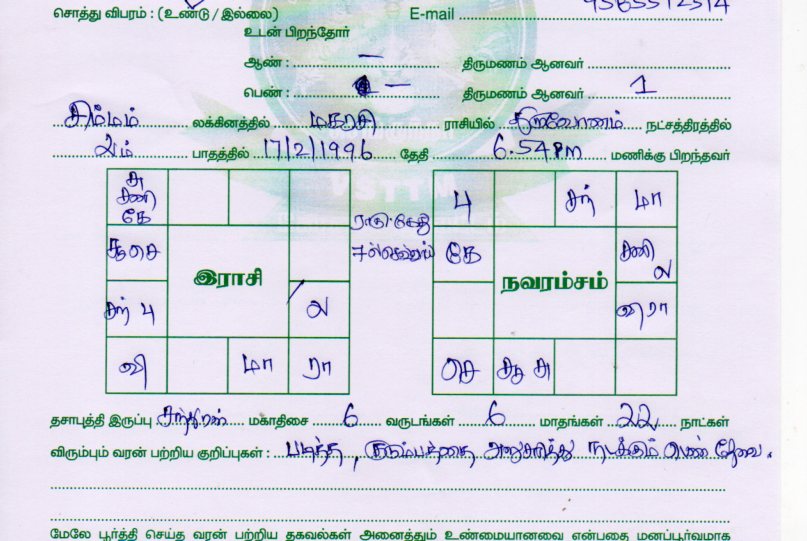 சொத்து விபரம் : (உண்டு / இல்லை) E-mail
உடன் பிறந்தோர்
ஆண் : — திருமணம் ஆனவர்
பெண் : — திருமணம் ஆனவர் 1
சிம்மம் லக்கினத்தில் மகரம் ராசியில் திருவோணம் நட்சத்திரத்தில்
2ம் பாதத்தில் 17/2/1996 தேதி 6.54 PM மணிக்கு பிறந்தவர்
சு
சனி
கே
பு சந் மா
ராகு கேது
7ல் செவ்வாய்
சூ செ
கே சனி
ல
இராசி நவரம்சம்
சந் பு ல
வி ரா
வி மா ரா
செ சூ சு
தசாபுத்தி இருப்பு சந்திரன் மகாதிசை 6 வருடங்கள் 6 மாதங்கள் 22 நாட்கள்
விரும்பும் வரன் பற்றிய குறிப்புகள் : படித்த, குடும்பத்தை அனுசரித்து நடக்கும் பெண் தேவை.
மேலே பூர்த்தி செய்த வரன் பற்றிய தகவல்கள் அனைத்தும் உண்மையானவை என்பதை மனப்பூர்வமாக